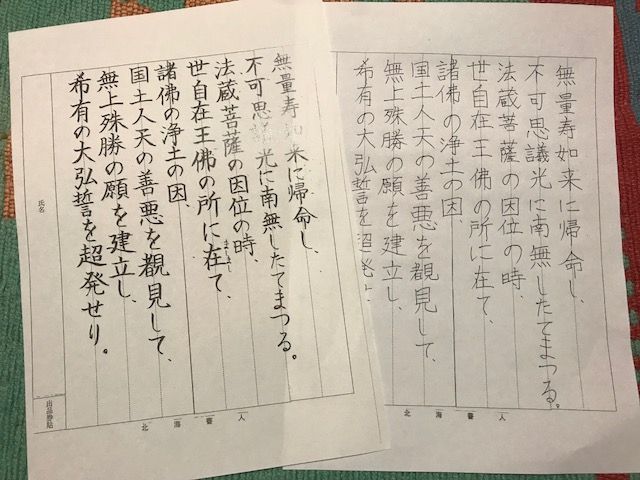 無量寿如来に帰命し、
不可思議光に南無したてまつる。
法蔵菩薩の因位の時、
世自在王佛の所に在て、
諸佛の浄土の因、
国土人天の善悪を覩見して、
無上殊勝の願を建立し、
希有の大弘誓を超発
北海書人
無量寿如来に帰命し、
不可思議光に南無したてまつる。
法蔵菩薩の因位の時、
世自在王佛の所に在て、
諸佛の浄土の因、
国土人天の善悪を覩見して、
無上殊勝の願を建立し、
希有の大弘誓を超発せり。
氏名
出品券貼
北海書人